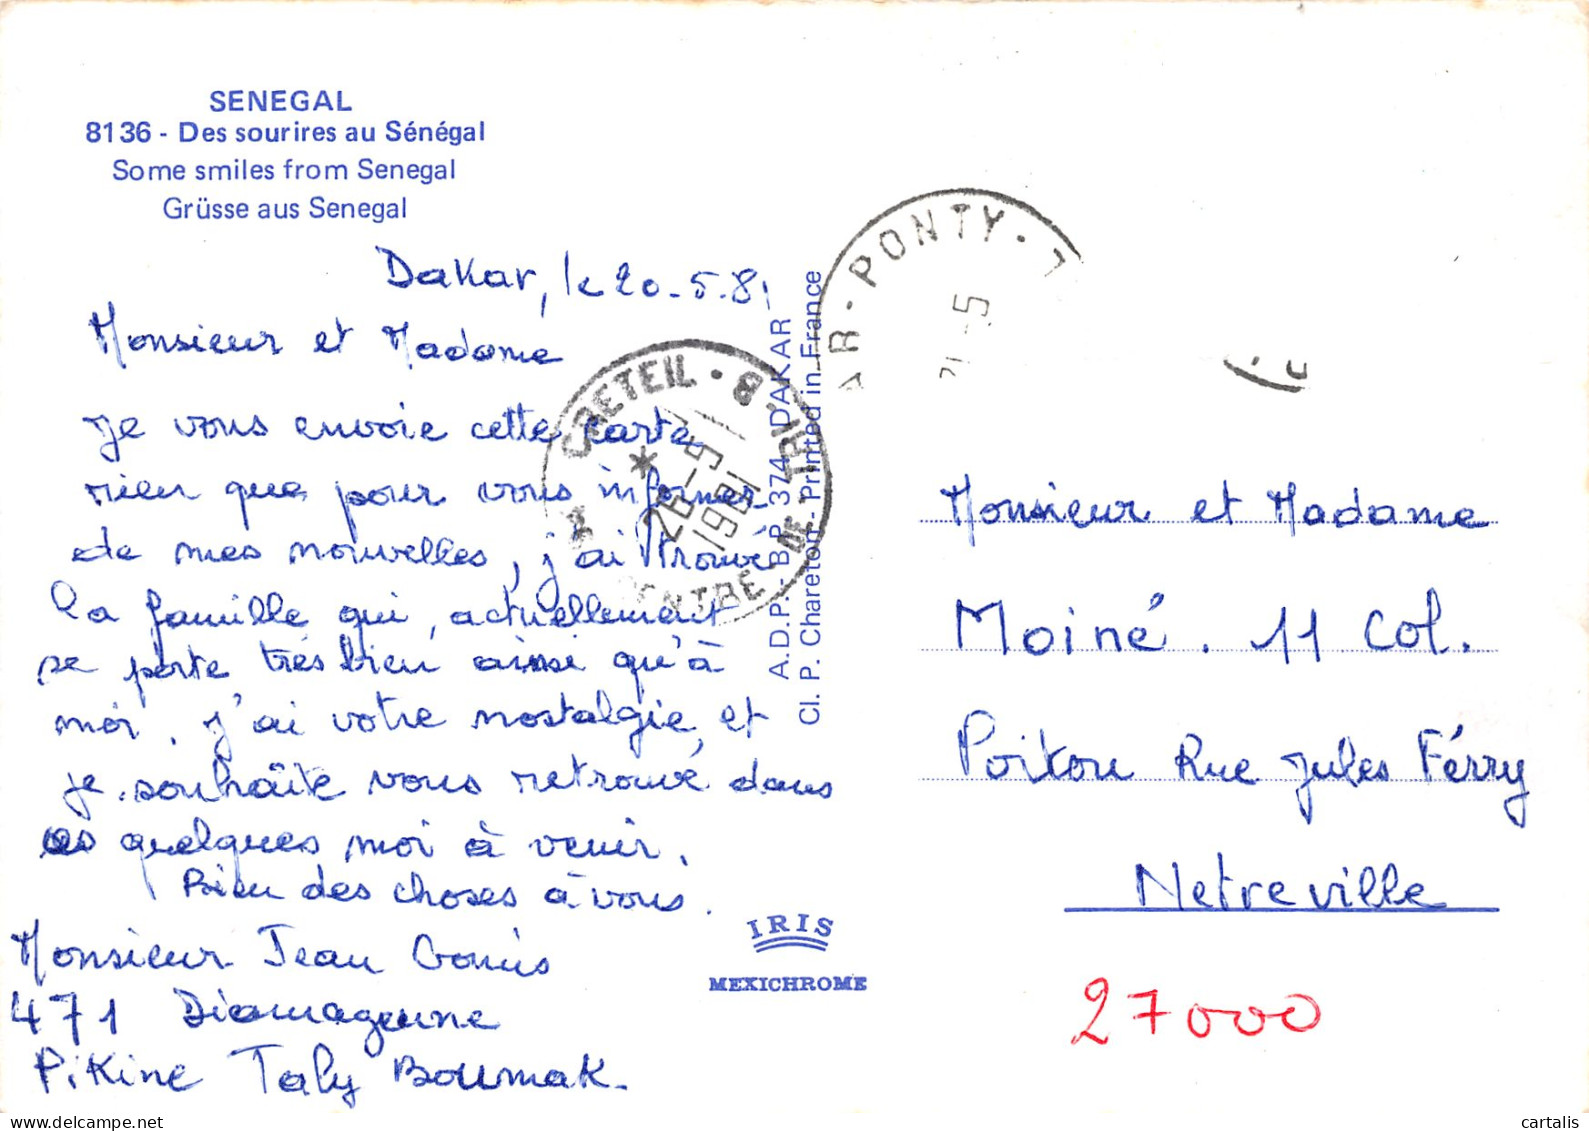 SENEGAL
8136 - Des sourires au Sénégal
Some smiles from Senegal
Grüsse aus Senegal
Dakar, le 20-5.81
Monsieur et Madame
Je vous envoie cette carte
rien que pour vous informer
de mes nouvelles, j'ai trouvé
la famille qui, actuellement
se porte très bien ainsi qu'à
moi. J'ai votre nostalgie, et
je souhaite vous retrouvé dans
quelques moi à venir.
Bien des choses à vous.
Monsieur Jean Gomis
471 Diamageune
Pikine Taly Boumak.
CRETEIL
26-5
1981
CENTRE DE TRI
A.D.P. - BP 374 - DAKAR
Cl. P. Chareton - Printed in France
AR-PONTY
21-5
IRIS
MEXICHROME
Monsieur et Madame
Moiné. 11 Col.
Poitou Rue Jules Férry
Netreville
27000
cartalis